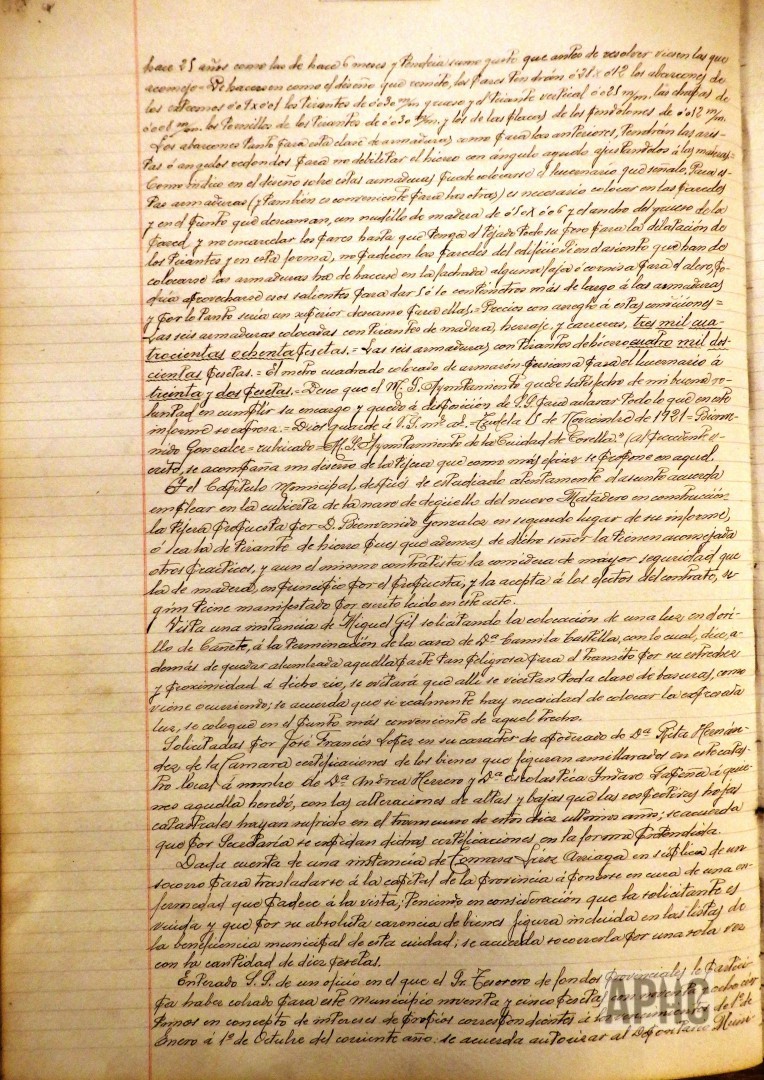 hace 25 años como las de hace 6 meses y tendría sumo gusto que antes de resolver viesen las que
aconsejo = De hacerse en como el diseño que remito, los pares tendrán 0'21 x 0'12 los abarcones de
los extremos 0'09 x 0'01 los tirantes de 0'030 m/m grueso y el tirante vertical 0'025 m/m. las chapas de
0'008 m/m. los tornillos de los tirantes de 0'030 m/m, y los de las placas de los pendolones de 0'012 m/m.
Los abarcones tanto para esta clase de armaduras como para las anteriores, tendrán las aris-
tas ó angulos redondos para no debilitar el hierro con ángulo agudo ajustandolos á las mismas =
Como indico en el diseño sobre estas armaduras puede colocarse el lucernario que señalo, Para es-
tas armaduras (y también es conveniente para las otras) es necesario colocar en las paredes
y en el punto que descansan, un nudillo de madera de 0'15 x 0'06 y el ancho del grueso de la
pared y no encarcelar los pares hasta que tenga el tejado todo su peso para la dilatación de
los tirantes y en esta forma, no padecen las paredes del edificio Si en el asiento que han de
colocarse las armaduras ha de hacerse en la fachada alguna faja ó cornisa para el alero, po-
dría aprovecharse esos salientes para dar 5 ó 10 centimetros más de largo á las armaduras
y por lo tanto sería un superior descanso para ellas. = Precios con arreglo á estas condiciones =
Las seis armaduras colocadas con tirantes de madera, herraje y carreras, tres mil cua-
trocientas ochenta pesetas. = Las seis armaduras con tirantes de hierro cuatro mil dos-
cientas pesetas. = El metro cuadrado colocado de armazón-persiana para el lucernario á
treinta y dos pesetas. = Deseo que el M. I. Ayuntamiento quede satisfecho de mi buena vo-
luntad en cumplir su encargo y quedo á disposición de S.S. para aclarar todo lo que en este
informe se expresa. = Dios guarde á V.S. ms. as. = Tudela 15 de Noviembre de 1921 = Bienve-
nido Gonzalez = rubricado = M. I. Ayuntamiento de la Ciudad de Corella." (al precedente es-
crito, se acompaña un diseño de la tijera que como más eficaz se propone en aquel.
Y el Capítulo Municipal, después de estudiado atentamente el asunto acuerda
emplear en la cubierta de la nave de degüello del nuevo Matadero en construcción
la tijera propuesta por D. Bienvenido Gonzalez en segundo lugar de su informe,
ó sea la de tirante de hierro pues que ademas de dicho señor la tienen aconsejada
otros prácticos, y aun el mismo contratista la considera de mayor seguridad que
la de madera, en principio por él propuesta, y la acepta á los efectos del contrato, se-
gún tiene manifestado por escrito leido en este acto.
Vista una instancia de Miguel Gil solicitando la colocación de una luz en el ori-
llo de Cañete, á la terminación de la casa de Dª Camila Castilla, con lo cual, dice, a-
demás de quedar alumbrada aquella parte tan peligrosa para el tránsito por su estrechez
y proximidad á dicho rio, se evitará que alli se viertan toda clase de basuras, como
viene ocurriendo; se acuerda que si realmente hay necesidad de colocar la expresada
luz, se coloque en el punto más conveniente de aquel trecho.
Solicitadas por José Francés Lopez en su caracter de apoderado de Dª Rita Hernán-
dez de la Camara certificaciones de los bienes que figuran amillarados en este catas-
tro local á nombre de Dª Andrea Herrero y Dª Escolastica Lapeña a quie-
nes aquella heredó, con las alteraciones de altas y bajas que las respectivas hojas
catastrales hayan sufrido en el transcurso de estos diez ultimos años; se acuerda
que por Secretaría se expidan dichas certificaciones en la forma pretendida.
Dada cuenta de una instancia de Tomasa Arriaga en súplica de un
socorro para trasladarse á la capital de la provincia á ponerse en cura de una en-
fermedad que padece á la vista; Teniendo en consideración que la solicitante es
viuda y que por su absoluta carencia de bienes figura incluida en las listas de
la beneficencia municipal de esta ciudad; se acuerda socorrerla por una sola vez
con la cantidad de diez pesetas.
Enterado S.S. de un oficio en el que el Sr. Tesorero de fondos provinciales le partici-
pa haber cobrado para este municipio noventa y cinco pesetas cuarenta y ocho cen-
timos en concepto de intereses de propios correspondientes á los vencimientos de 1º de
Enero á 1º de Octubre del corriente año: se acuerda autorizar al Depositario Muni-
APHC